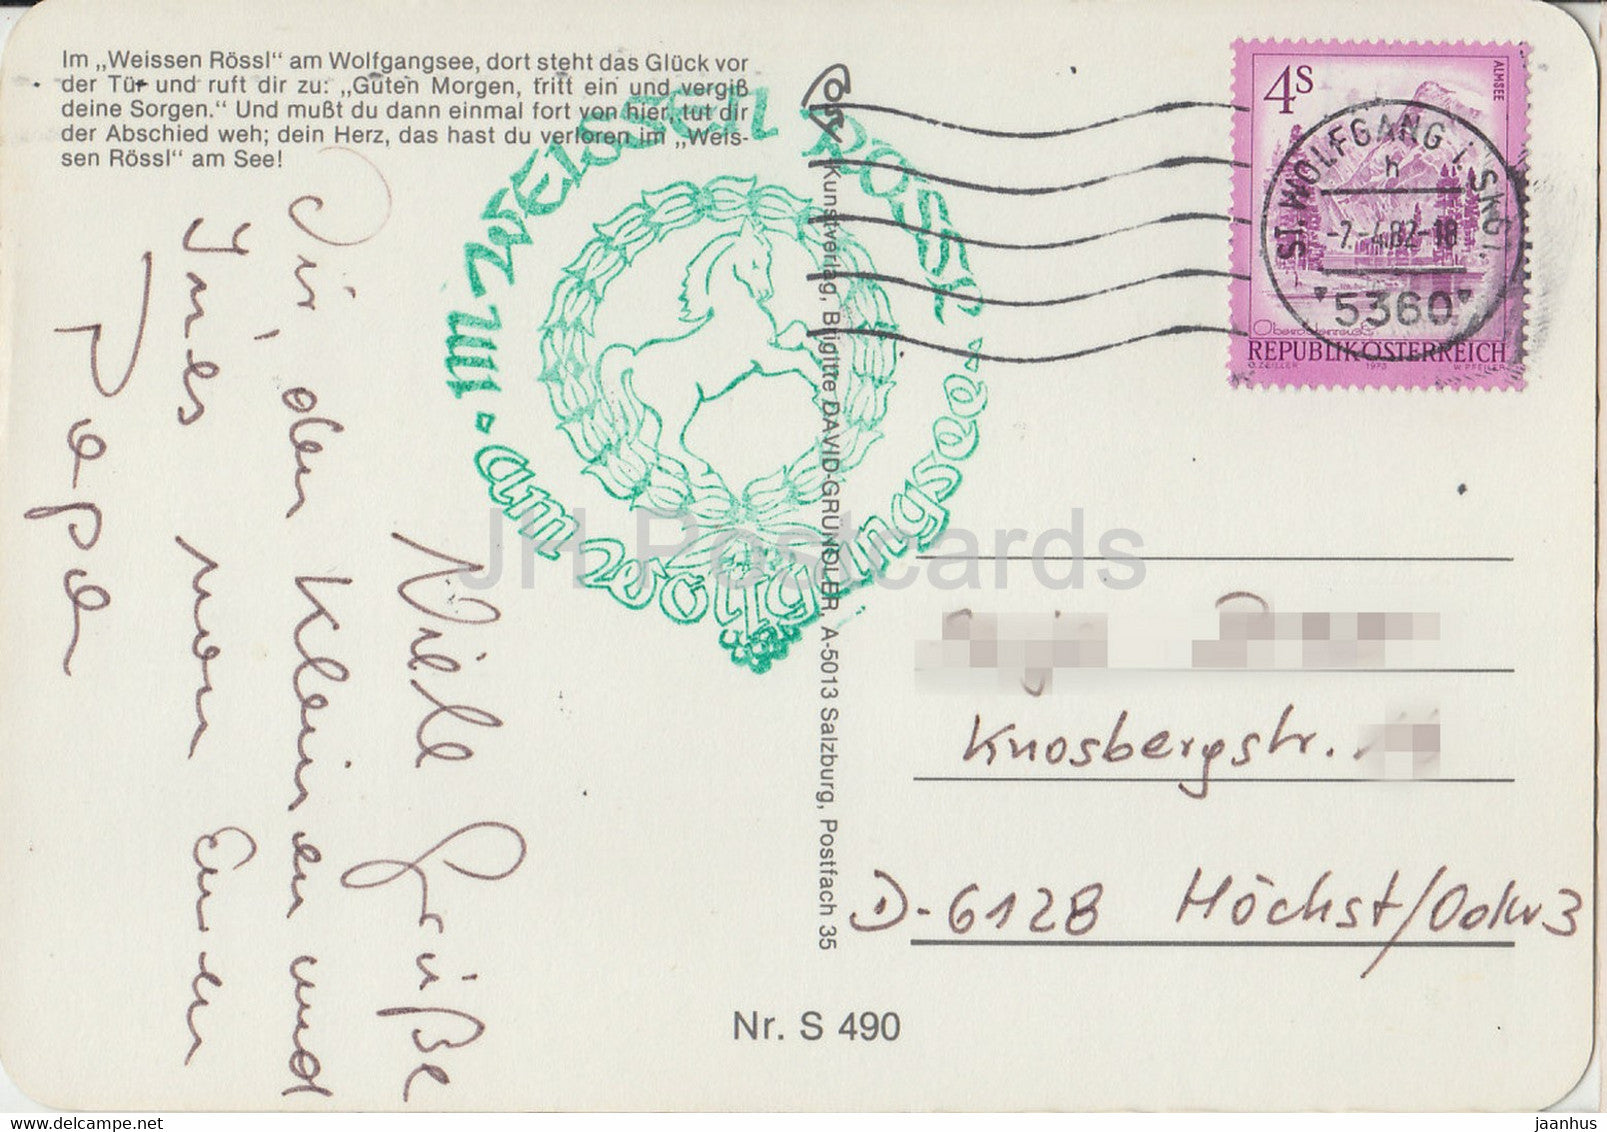 Im „Weissen Rössl“ am Wolfgangsee, dort steht das Glück vor
der Tür und ruft dir zu: „Guten Morgen, tritt ein und vergiß
deine Sorgen.“ Und mußt du dann einmal fort von hier, tut dir
der Abschied weh; dein Herz, das hast du verloren im „Weis-
sen Rössl“ am See!
Viele Grüße
Dir, den Kleinen und
Ines von Euren
Papa
IM WEISSEN RÖSSL
am Wolfgangsee
Kunstverlag, Brigitte DAVID-GRÜNDLER, A-5013 Salzburg, Postfach 35
4S
ALMSEE
ST. WOLFGANG i. SKGT.
h
-7.-4.82-18
5360
Oberösterreich
REPUBLIK ÖSTERREICH
O. ZEILLER 1973 W. PFEILER
Knosbergstr.
D-6128 Höchst/Odw 3
Nr. S 490
JH Postcards
www.delcampe.net
jaanhus